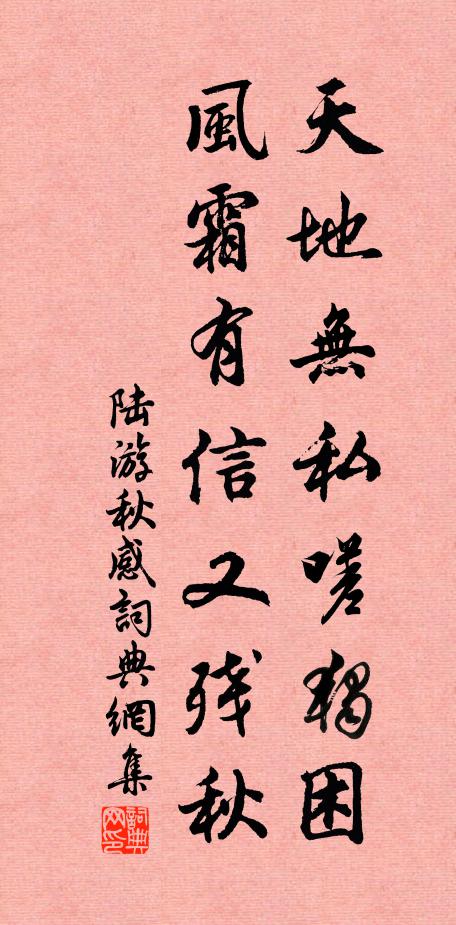 天地無私嗟獨困
風霜有信又殘秋
陆游秋感詞典網集
詞典网印